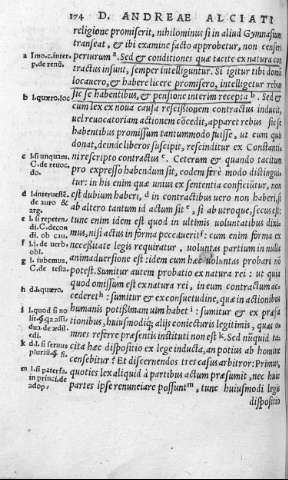 174 D. ANDREAE ALCIATI
religione promiserit, nihilominus si in aliud Gymnasium
transeat, & ibi examine facto approbetur, non censeri
periurum a. Sed & conditiones quæ tacite ex natura con
tractus insunt, semper intelliguntur. Si igitur tibi domũ
locauero, & habere licere promisero, intelligetur rebus
sic se habentibus, & pensione interim recepta b. Sed &
cum lex ex noua causa rescissionem contractus inducit,
uel reuocatoriam actionem cõcedit, apparet rebus sic se
habentibus promissum tantummodo fuisse, ut cum quis
donat, deinde liberos suscipit, rescinditur ex Constanti
ni rescripto contractus c. Ceterum & quando tacitum
pro expresso habendum sit, eodem ferè modo distingui
tur: in his enim quæ unius ex sententia conficiuntur, non
est dubium haberi, d in contractibus uero non haberi, si
ab altero tantum id actum sit e, si ab utroque, secus est:
tunc enim idem est quod in ultimis uoluntatibus dixi
mus, nisi actus in forma peccauerit f: cum enim forma ex
necessitate legis requiratur, uoluntas partium in nulla
animaduersione est: idem cum hæc uoluntas probari nõ
potest. Sumitur autem probatio ex natura rei: ut quia
quod omissum est ex natura rei, in eum contractum ac-
cederet h: sumitur & ex consuetudine, quæ in actionibus
humanis potissimam uim habet i: sumitur & ex præsa
tionibus, huiusmodiq; alijs coniecturis legitimis, quas o
mnes referre præsentis instituti non est k. Sed nũquid ta
cita hæc dispositio ex lege inducta, an potius ab homine
censebitur? Et discernendos tres casus arbitror: Primus,
quoties lex aliquid à partibus actum præsumit, nec hæ
partes ipse renunciare possunt m, tunc huiusmodi legis
dispositio
a l. no. c. inter
p. de renũ.
b l. quæro. loc.
c l. si unquam.
C. de reuoc.
do.
e l. si repeten
di. C. de con
di. ob cau.
f l. i. de uerb.
obl.
g l. iubemus.
C. de testa.
h d. l. quæro.
k d. l. si seruus
plurium. §. si.